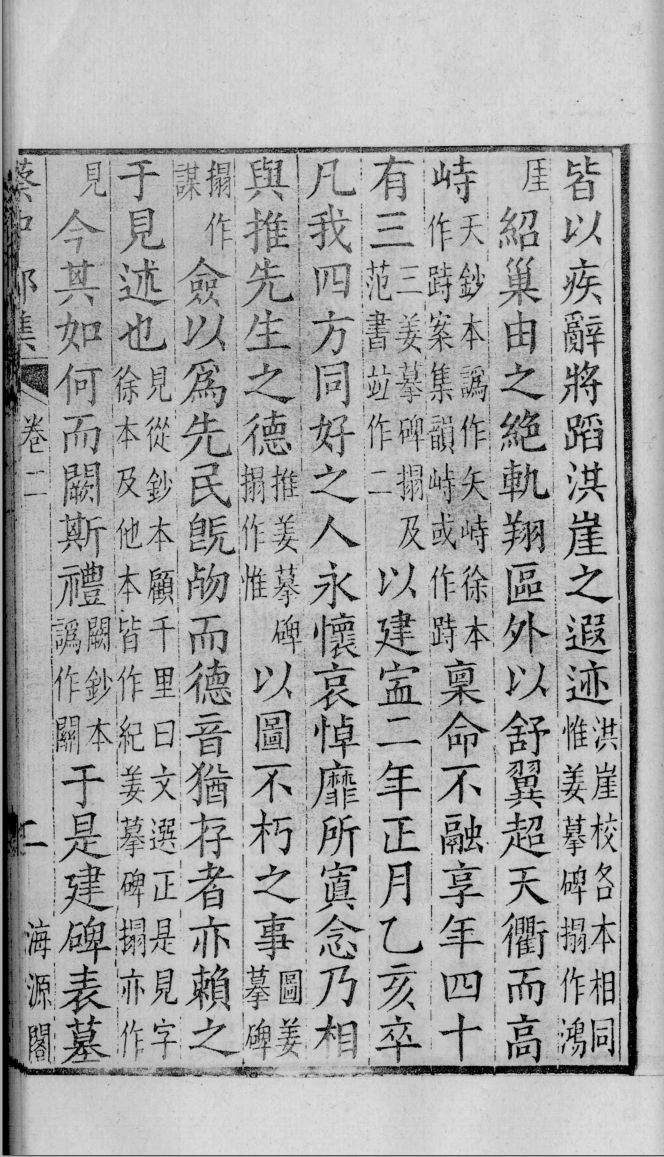 皆以疾辭將蹈洪崖之遐迹洪崖校各本相同惟姜摹碑搨作鴻
厓紹巢由之絕軌翔區外以舒翼超天衢而高
峙天鈔本譌作矢峙徐本作跱案集韻峙或作跱稟命不融享年四十
有三三姜摹碑搨及范書竝作二以建寍二年正月乙亥卒
凡我四方同好之人永懷哀悼靡所寘念乃相
與推先生之德推姜摹碑搨作惟以圖不朽之事圖姜摹碑
搨作謀僉以爲先民旣歾而德音猶存者亦賴之
于見述也見從鈔本顧千里曰文選正是見字徐本及他本皆作紀姜摹碑搨亦作
見今其如何而闕斯禮闕鈔本譌作關于是建碑表墓
蔡中郎集 卷二 二 海源閣